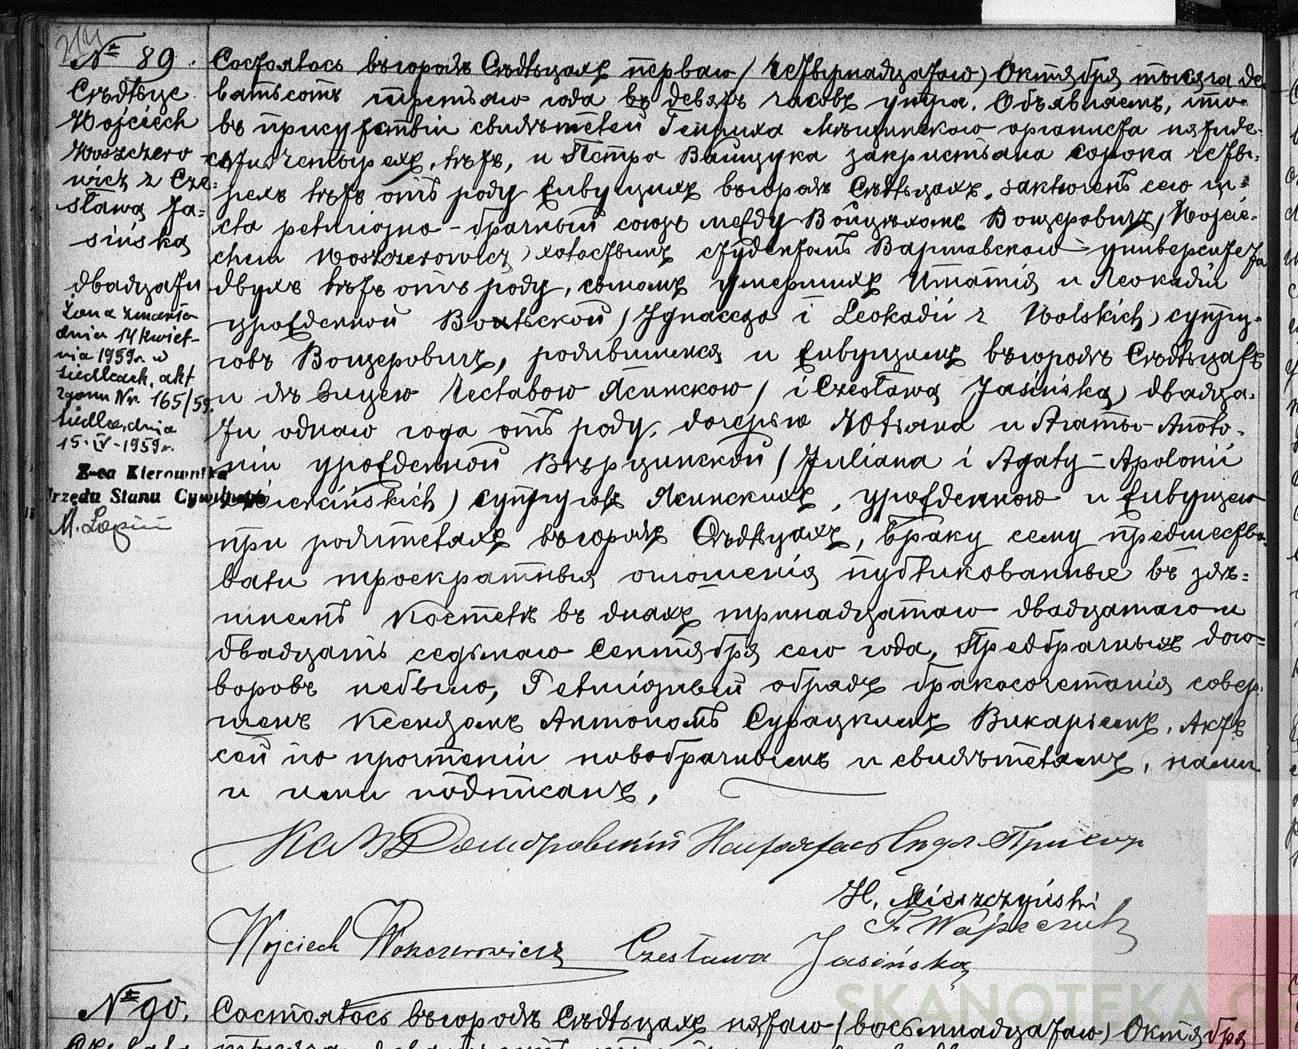 № 89.
Сѣдльце
Wojciech
Woszczero
wicz z Cze-
sławą Ja=
sińską
двадцаты
Żona zmarła
dnia 14 kwiet-
nia 1959 r. w
Siedlcach, akt
zgonu Nr 165/59.
Siedlce, dnia
15.IV-1959 r.
Z-ca Kierownika
Urzędu Stanu Cywilnego
Состоялось въ городѣ Сѣдльцахъ перваго /четырнадцатаго) Октября тысяча де
вятьсотъ третьяго года въ девять часовъ утра. Объявляемъ, что-
въ присутствіи свидѣтелей Генриха Мѣщинскаго органиста пятиде-
сяти четырехъ лѣтъ, и Петра Вайщука закристіана сорока четы-
рехъ лѣтъ отъ роду живущихъ въ городѣ Сѣдльцахъ, заключенъ сего чи=
сла религіозно-брачный союзъ между Войцѣхомъ Вощеровичъ /Wojcie-
chem Woszczerowicz) холостымъ студентомъ Варшавскаго университета
двухъ лѣтъ отъ роду, сыномъ умершихъ Игнатія и Леокадіи
урожденной Вольской /Ignacego i Leokadii z Wolskich) супру-
говъ Вощеровичъ, родившимся и живущимъ въ городѣ Сѣдльцахъ
и дѣвицею Чеславою Ясинскою / i Czesławą Jasińską) двадца-
ти одного года отъ роду, дочерью Юліана и Агаты-Аполо-
ніи урожденной Вѣрцинской /Juliana i Agaty-Apolonii
Wiercińskich) супруговъ Ясинскихъ, урожденною и живущею
при родителяхъ въ городѣ Сѣдльцахъ, Браку сему предшество-
вали троекратныя оглашенія публикованныя въ здѣ=
шнемъ Костелѣ въ дняхъ тринадцатаго двадцатаго и
двадцать седьмаго Сентября сего года, Предбрачныхъ дого=
воровъ небыло, Религіозный обрядъ бракосочетанія совер-
шенъ Ксендзомъ Антономъ Сурацкимъ Викаріемъ. Актъ
сей по прочтеніи новобрачнымъ и свидѣтелямъ, нами
и ими подписанъ.
Домбровскій Настоятель Сѣдл. Приход
H. Mieszczyński
Wojciech Woszczerowicz Czesława Jasińska
№ 90. Состоялось въ городѣ Сѣдльцахъ пятаго (восьмнадцатаго) Октября
SKANOTEKA